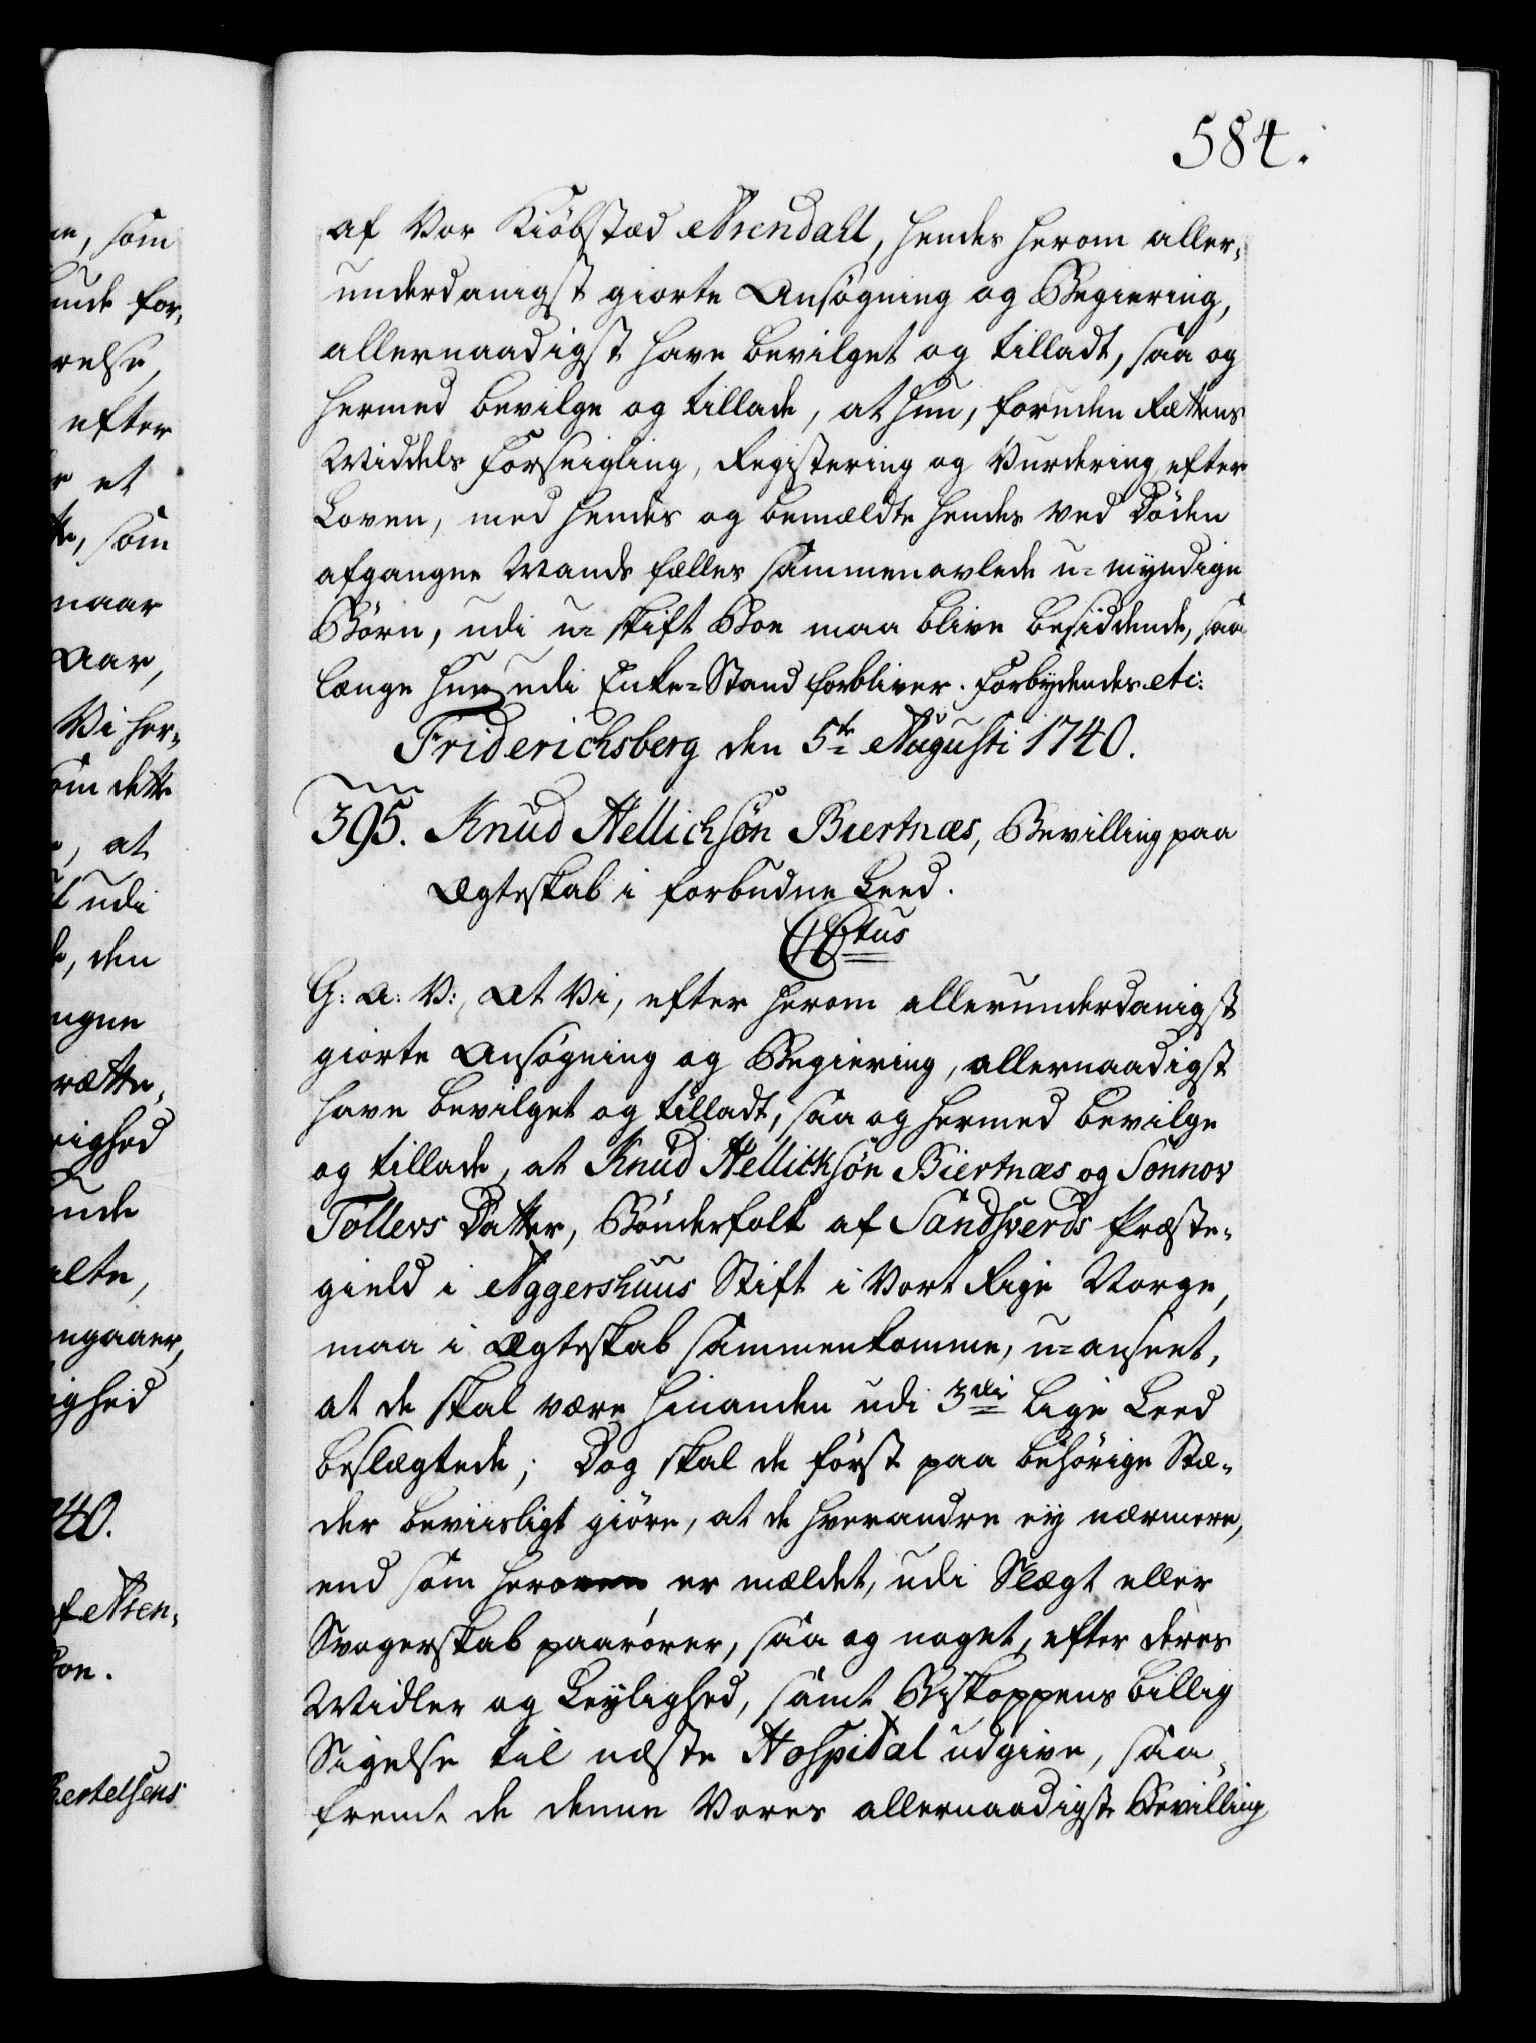 584.
af Vor Kiöbstæd Arendall, hendes herom aller-
underdanigst giorte Ansögning og Begiering,
allernaadigst have bevilget og tilladt, saa og
hermed bevilge og tillade, at hun, foruden Rættens
Middels Forseigling, Registering og Vurdering efter
Loven, med hendes og bemældte hendes ved Döden
afgangne Mands fælles sammenavlede u-myndige
Börn, udi u-skift Boe maa blive besiddende, saa
længe hun udi Enke-Stand forbliver. Forbydendes etc:
Friderichsberg den 5te Augusti 1740.
395. Knud Hellichsön Biertnæs, Bevilling paa
Ægteskab i forbudne Leed.
C6tus
G: A: V:, At Vi, efter herom allerunderdanigst
giorte Ansögning og Begiering, allernaadigst
have bevilget og tilladt, saa og hermed bevilge
og tillade, at Knud Hellichsön Biertnæs og Sönnov
Tollevs Datter, Bönderfolk af Sandsverds Præste-
gield i Aggershuus Stift i Vort Rige Norge,
maa i Ægteskab sammenkomme, u-anseet,
at de skal være hinanden udi 3die lige Leed
beslægtede; Dog skal de först paa behörige Stæ-
der beviisligt giöre, at de hverandre ey nærmere,
end som heroven er mældet, udi Slægt eller
Svogerskab paarörer, saa og noget, efter deres
Midler og Leylighed, samt Biskoppens billig
Sigelse til næste Hospital udgive, saa-
fremt de denne Vores allernaadigste Bevilling